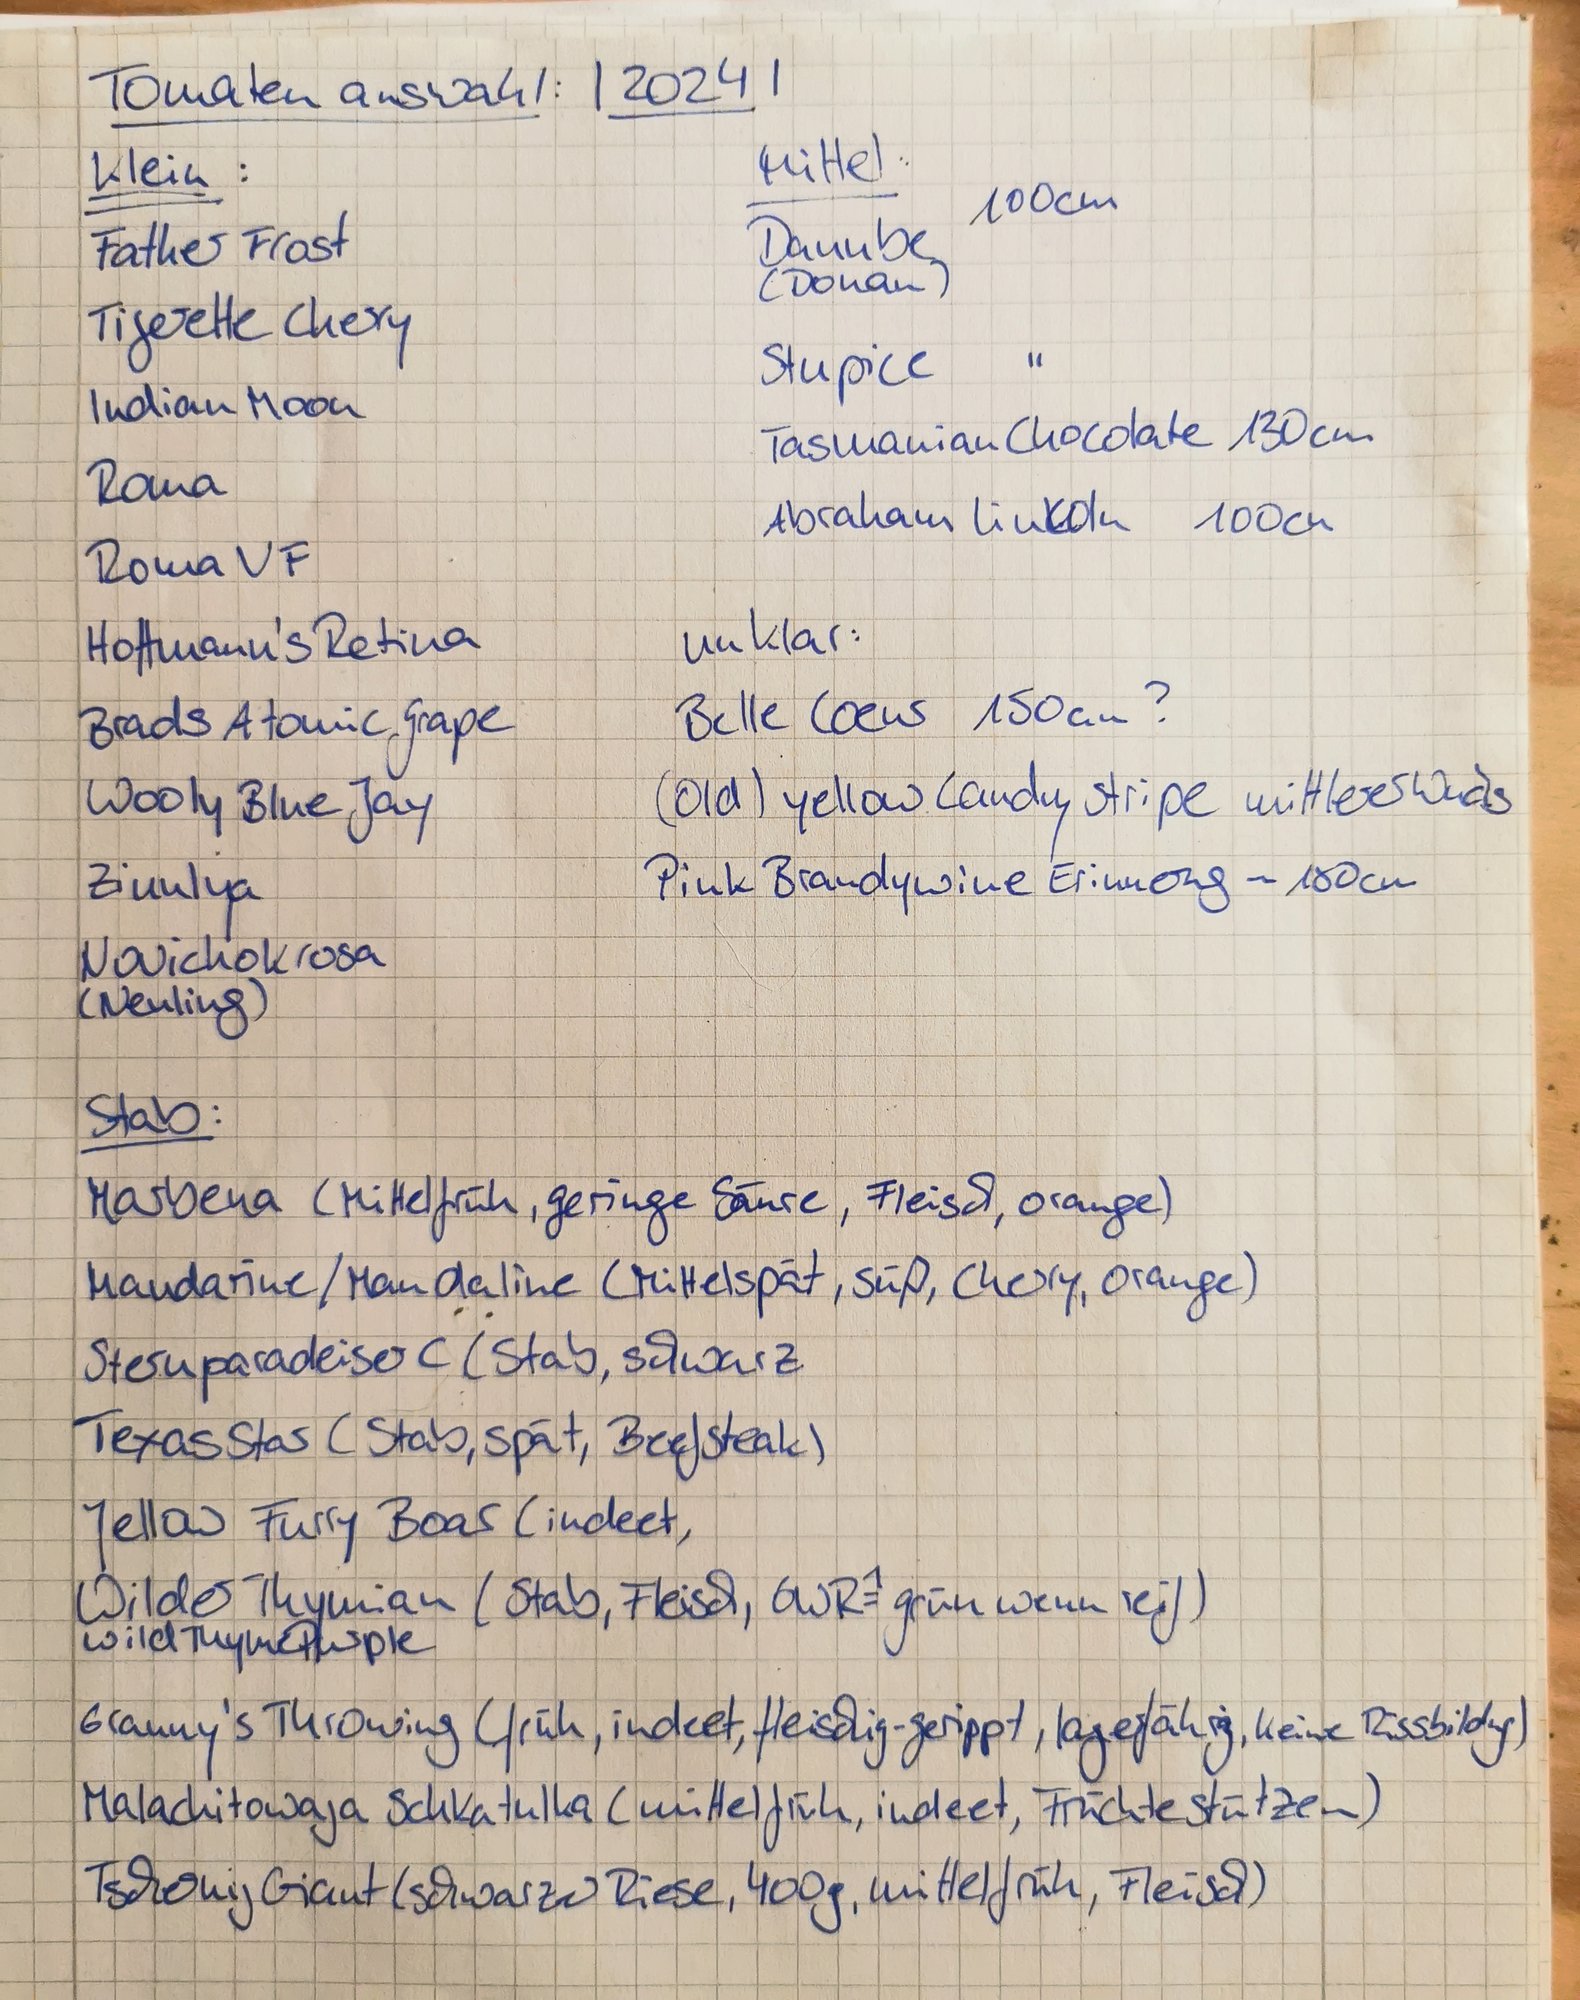 Tomaten auswahl: |2024|
Klein:
Father Frost
Tigerette Chery
Indian Moon
Roma
Roma VF
Hoffmann's Retina
Brads Atomic Grape
Wooly Blue Jay
Zinulya
Novichok rosa
(Neuling)
Mittel:
Danube 100cm
(Donau)
Stupice "
Tasmanian Chocolate 130cm
Abraham Linkoln 100cm
unklar:
Belle Coeur 150cm?
(Old) yellow Candy stripe mittlerer Wuchs
Pink Brandywine Erinnerung ~ 180cm
Stab:
Marbena (Mittelfrüh, geringe Säure, Fleisch, orange)
Mandarine/Mandaline (Mittelspät, süß, Chery, orange)
Sternparadeiser C (Stab, schwarz
Texas Star (Stab, spät, Beefsteak)
Yellow Furry Boar (indeet,
Wilder Thymian (Stab, Fleisch, GWR = grün wenn reif)
Wild Thyme Purple
Granny's Throwing (früh, indeet, fleischig-gerippt, lagerfähig, keine Rissbildung)
Malachitowaja Schkatulka (mittelfrüh, indeet, Früchte stützen)
Tschernij Giant (schwarzer Riese, 400g, mittelfrüh, Fleisch)